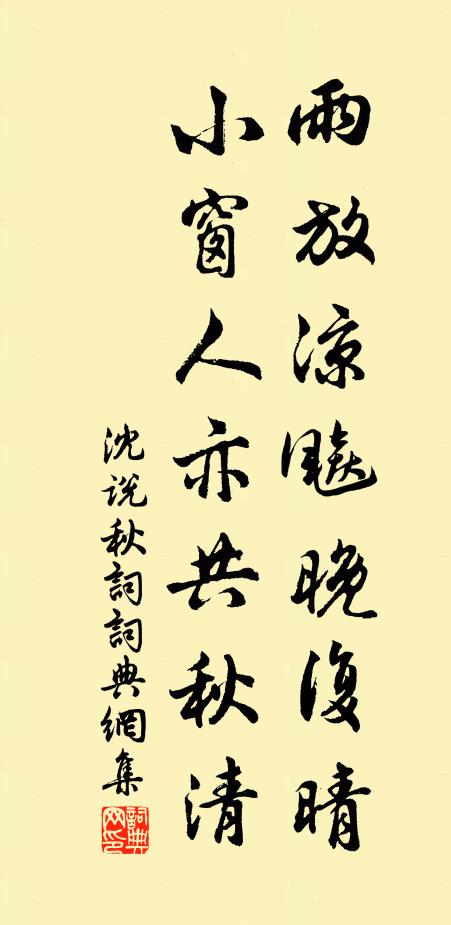 雨放涼飚晚復晴
小窗人亦共秋清
沈说秋詞詞典網集
詞典網印